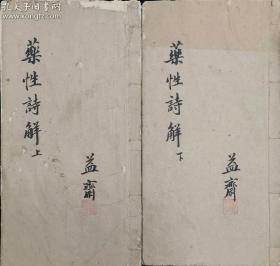 孔夫子旧书网
藥性詩解 上
益齋
藥性詩解 下
益齋